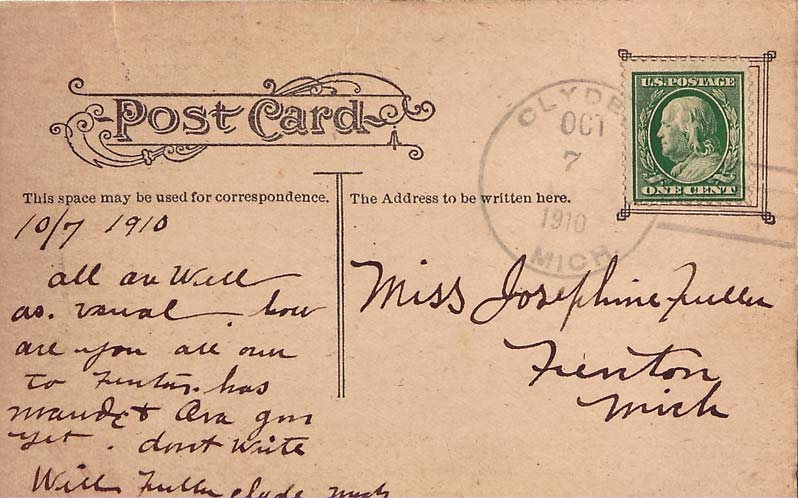 Post Card
CLYDE
OCT
7
1910
MICH.
U.S. POSTAGE
ONE CENT
This space may be used for correspondence.
The Address to be written here.
10/7 1910
all are Well
as. usual. how
are you all over
to Fenton. has
maude & Ora gon
yet. dont write
Will Fuller Clyde Mich
Miss Josephine Fuller
Fenton
Mich